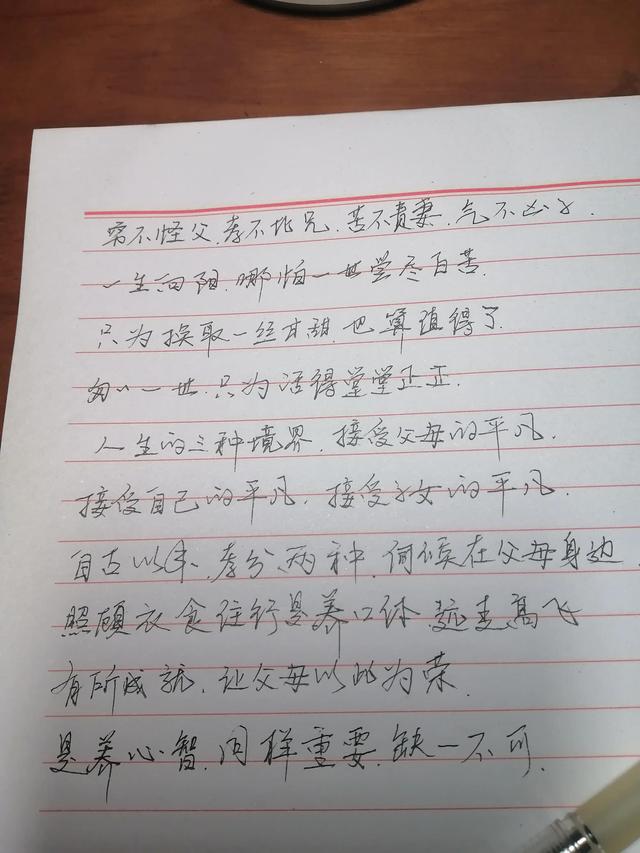 穷不怪父.孝不比兄.苦不责妻.气不凶子.
一生向阳.哪怕一世尝尽百苦.
只为换取一丝甘甜.也算值得了.
匆匆一世.只为活得堂堂正正.
人生的三种境界.接受父母的平凡.
接受自己的平凡.接受子女的平凡.
自古以来.孝分两种.伺候在父母身边
照顾衣食住行是养口体 远走高飞
有所成就.让父母以此为荣.
是养心智.同样重要.缺一不可.